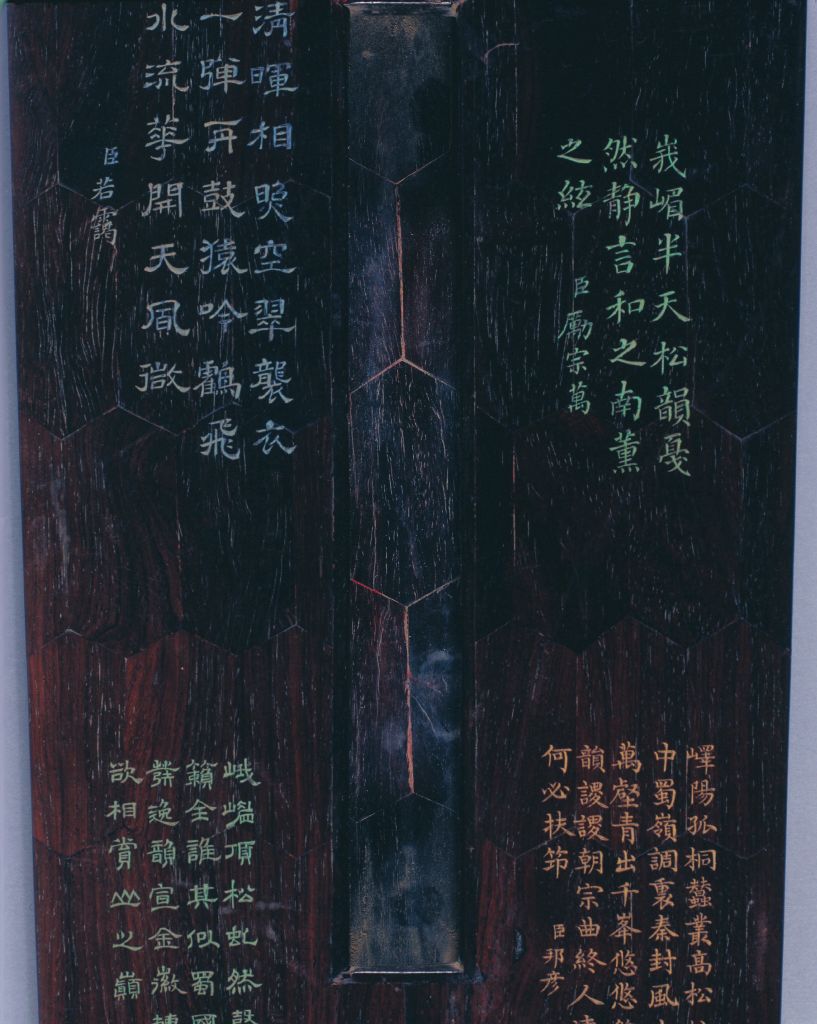 峩嵋半天松韻戞
然静言和之南薰
之絃
臣勵宗萬
清暉相暎空翠襲衣
一彈再鼓猿吟鶴飛
水流華開天風微
臣若靄
嶧陽孤桐蠶叢高松
中蜀嶺調裏秦封風
萬壑青出千峯悠悠
韻謖謖朝宗曲終人
何必扶笻
臣邦彦
頂松虬然
籟全誰其似蜀國
發逸韻宣金徽轉
欲相賞山之巔